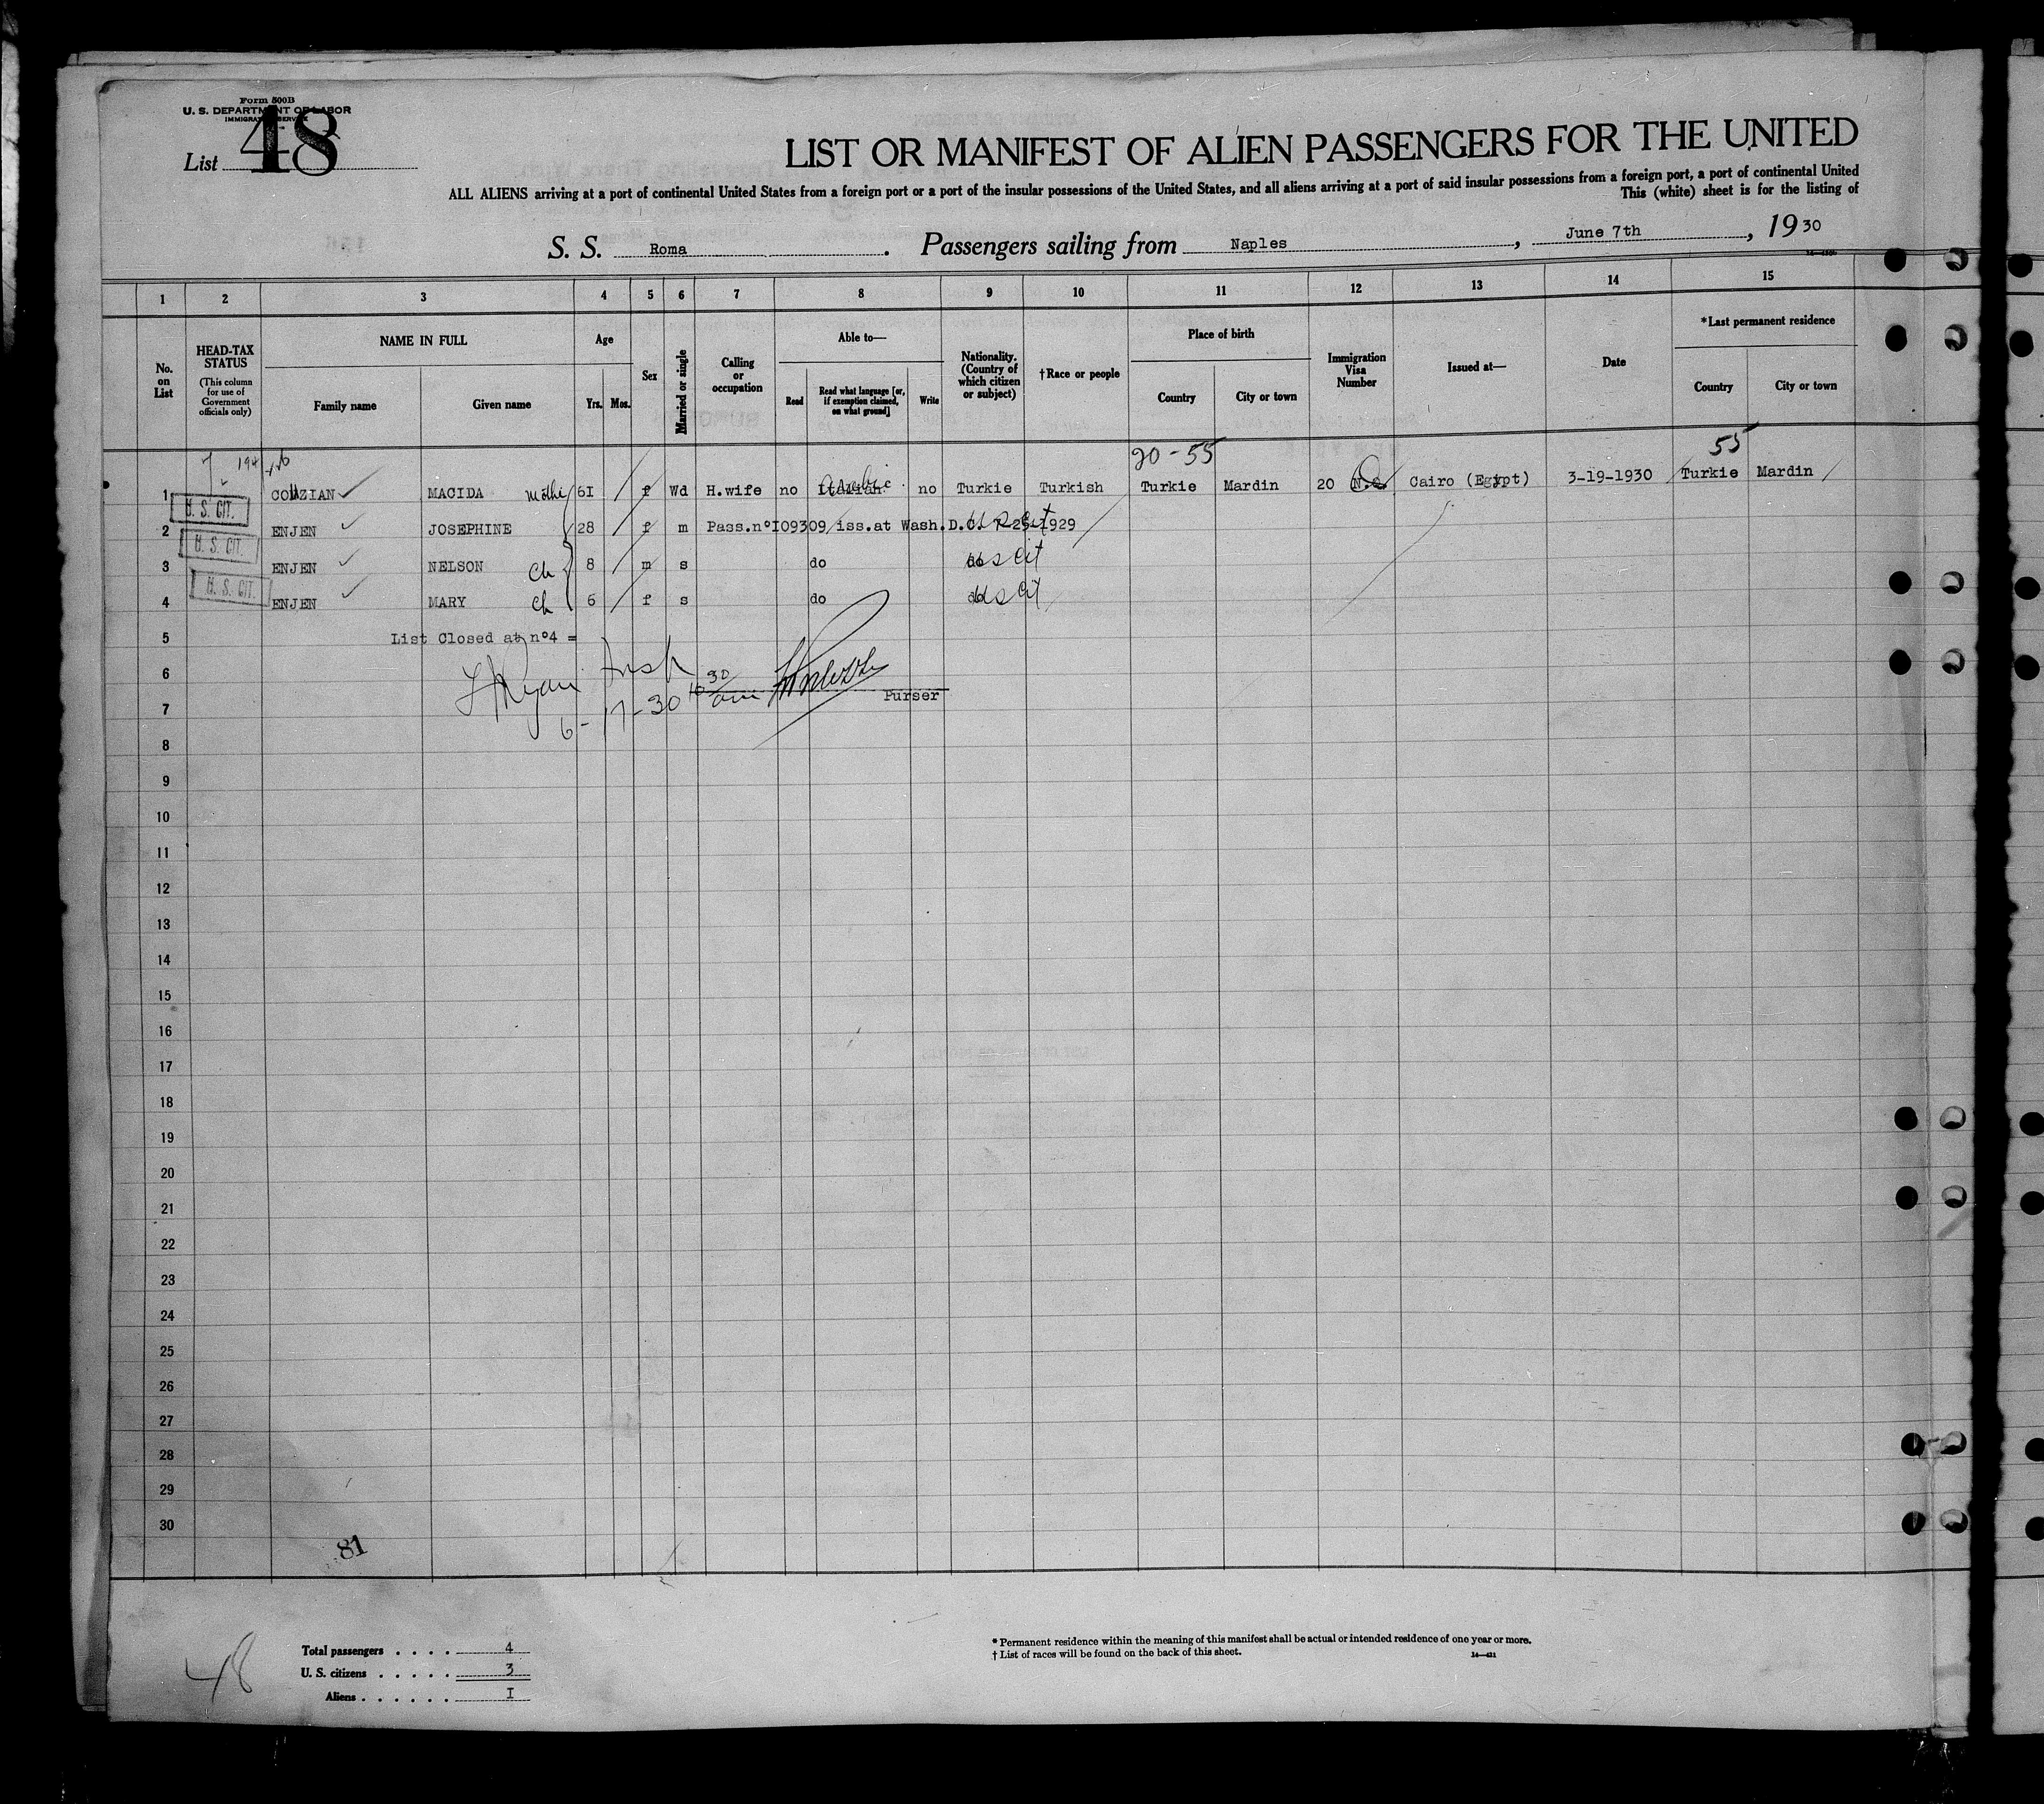 Form 500B
U. S. DEPARTMENT OF LABOR
IMMIGRATION SERVICE
List 48
LIST OR MANIFEST OF ALIEN PASSENGERS FOR THE UNITED
ALL ALIENS arriving at a port of continental United States from a foreign port or a port of the insular possessions of the United States, and all aliens arriving at a port of said insular possessions from a foreign port, a port of continental United
This (white) sheet is for the listing of
S. S. Roma. Passengers sailing from Naples, June 7th, 1930
1 2 3 4 5 6 7 8 9 10 11 12 13 14 15
No. on List
HEAD-TAX STATUS (This column for use of Government officials only)
NAME IN FULL
Family name Given name
Age
Yrs. Mos.
Sex
Married or single
Calling or occupation
Able to—
Read
Read what language [or, if exemption claimed, on what ground]
Write
Nationality. (Country of which citizen or subject)
†Race or people
Place of birth
Country City or town
Immigration Visa Number
Issued at—
Date
*Last permanent residence
Country City or town
20-55 55
1 MACIDA 61 f Wd H.wife no Italian Arabic no Turkie Turkish Turkie Mardin 20 Cairo (Egypt) 3-19-1930 Turkie Mardin
U. S. CIT.
2 ENJEN JOSEPHINE 28 f m Pass.n°I09309 iss.at Wash.D.C.
U. S. CIT.
3 ENJEN NELSON ch 8 m s do us cit
U. S. CIT.
4 ENJEN MARY ch 6 f s do us cit
5 List Closed at n°4 =
6
Ryan Insp
6-17-30 10 30 am
Purser
7
8
9
10
11
12
13
14
15
16
17
18
19
20
21
22
23
24
25
26
27
28
29
30
81
48
Total passengers . . . . 4
U. S. citizens . . . . . 3
Aliens . . . . . . I
* Permanent residence within the meaning of this manifest shall be actual or intended residence of one year or more.
† List of races will be found on the back of this sheet.
14—421